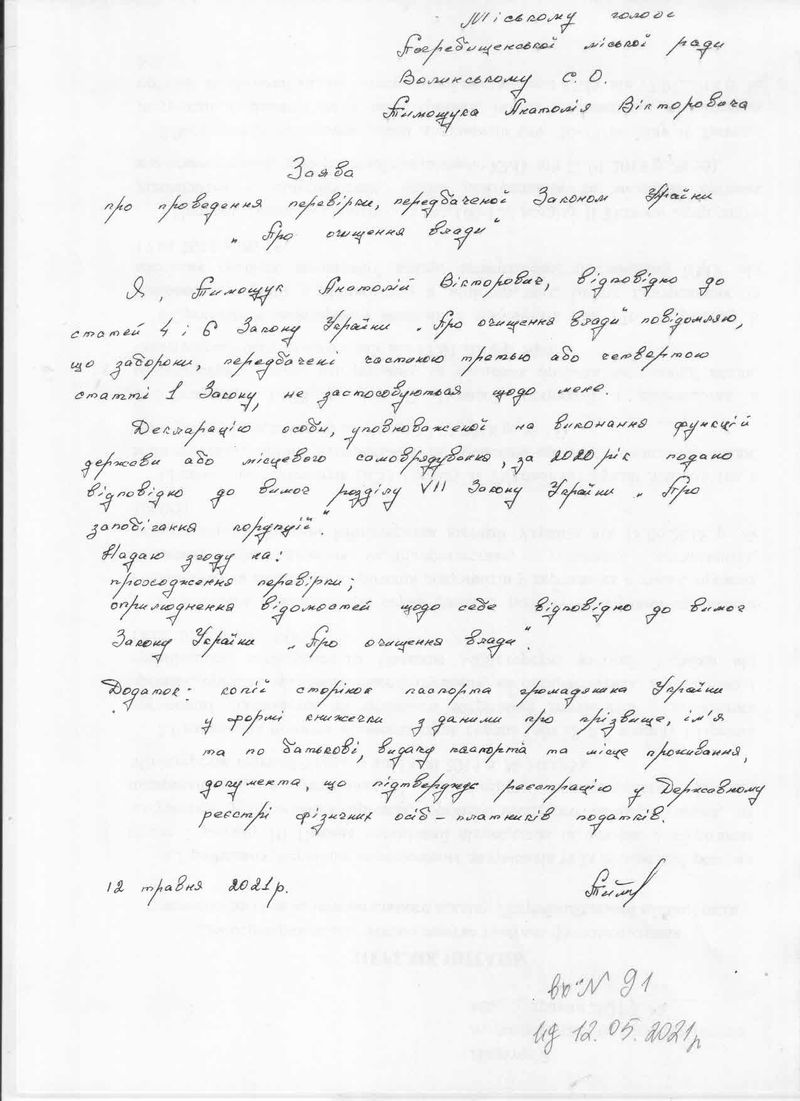 Міському голові
Погребищенської міської ради
Волинському С. О.
Тимощука Анатолія Вікторовича
Заява
про проведення перевірки, передбаченої Законом України
„Про очищення влади"
Я, Тимощук Анатолій Вікторович, відповідно до
статей 4 і 6 Закону України „Про очищення влади" повідомляю,
що заборони, передбачені частиною третьою або четвертою
статті 1 Закону, не застосовуються щодо мене.
Декларацію особи, уповноваженої на виконання функцій
держави або місцевого самоврядування, за 2020 рік подано
відповідно до вимог розділу VII Закону України „Про
запобігання корупції."
Надаю згоду на:
проходження перевірки;
оприлюднення відомостей щодо себе відповідно до вимог
Закону України „Про очищення влади".
Додаток: копії сторінок паспорта громадянина України
у формі книжечки з даними про прізвище, ім'я
та по батькові, видачу паспорта та місце проживання,
документа, що підтверджує реєстрацію у Державному
реєстрі фізичних осіб – платників податків.
12 травня 2021 р.
вх. № 91
від 12.05.2021р